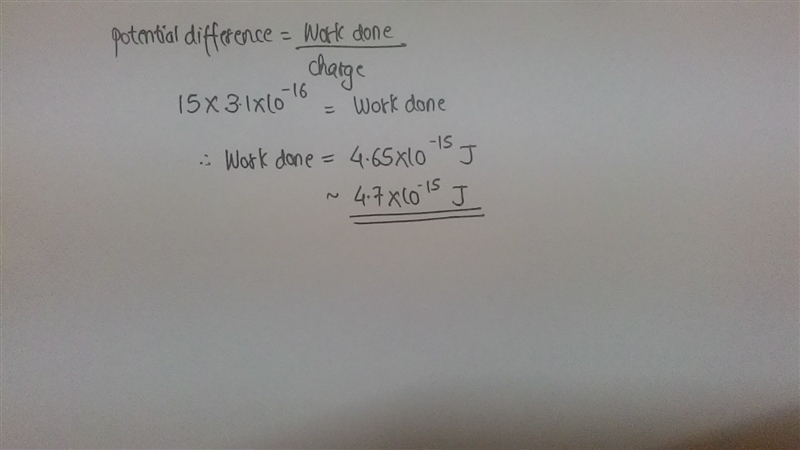 potential difference = Work done
charge
15 x 3.1x10^-16 = Work done
∴ Work done = 4.65x10^-15 J
~ 4.7x10^-15 J